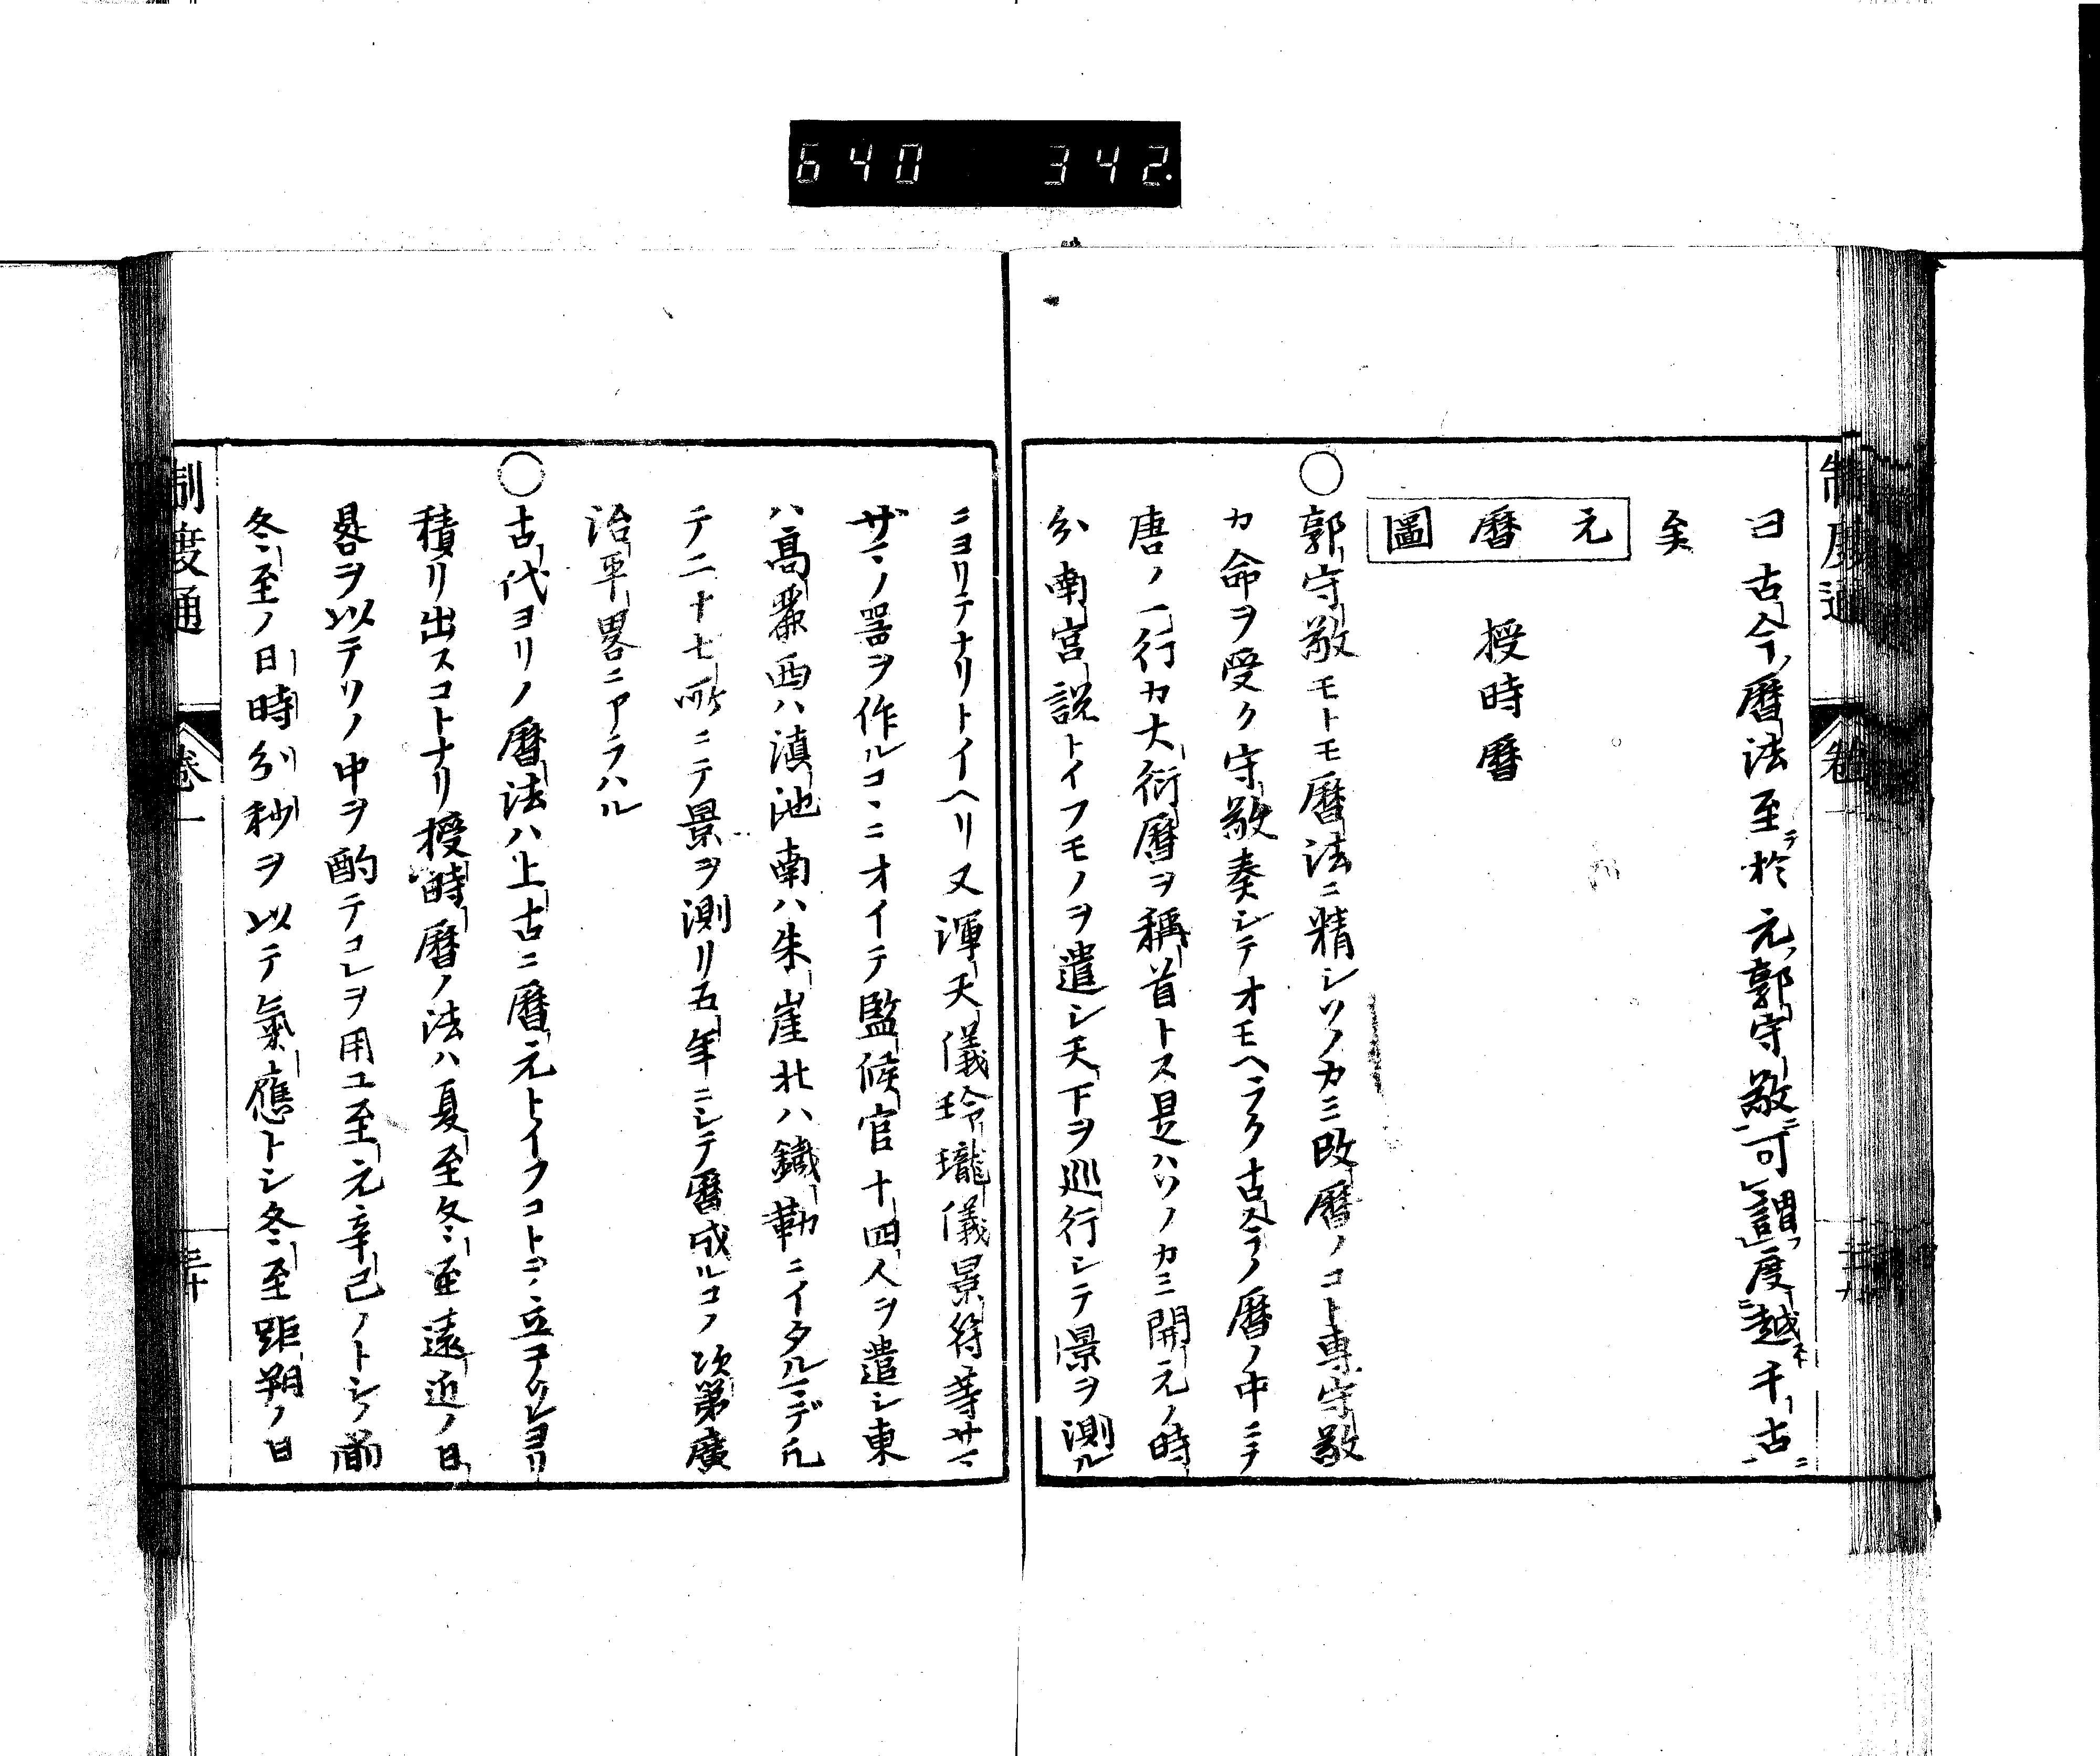 640 342.
制度通 卷一
曰古今曆法至テ於元郭守敬ニ可謂度越ス千古ニ
矣
元曆圖
授時曆
○郭守敬モトモ曆法ニ精シソノカミ改曆ノコト專守敬
カ命ヲ受ク守敬奏シテオモヘラク古今ノ曆ノ中ニテ
唐ノ一行カ大衍曆ヲ稱首トス是ハソノカミ開元ノ時
分南宮說トイフモノヲ遣シ天下ヲ巡行シテ景ヲ測ル
ニヨリテナリトイヘリ又渾天儀玲瓏儀景符等サマ
ザマノ器ヲ作ルコヽニオイテ監候官十四人ヲ遣シ東
ハ高麗西ハ滇池南ハ朱崖北ハ鐵勒ニイタルマデ凡
テ二十七所ニテ景ヲ測リ五年ニシテ曆成ルコノ次第廣
治平畧ニアラハル
○古代ヨリノ曆法ハ上古ニ曆元トイフコトヲ立テソレヨリ
積リ出スコトナリ授時曆ノ法ハ夏至冬至遠近ノ日
晷ヲ以テソノ中ヲ酌テコレヲ用ユ至元辛巳ノトシノ前
冬至ノ日時分秒ヲ以テ氣應トシ冬至距朔ノ日
制度通 卷一 三十